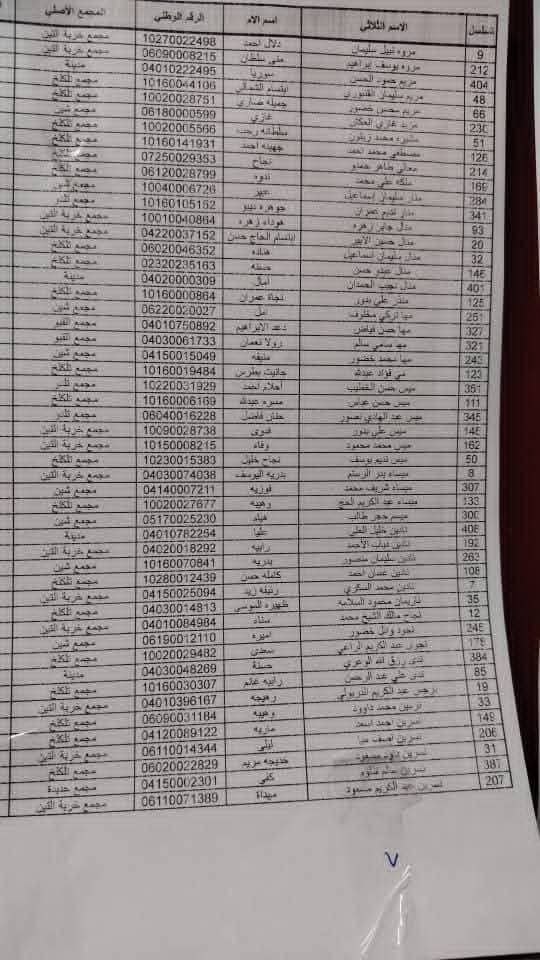 تسلسل الاسم الثلاثي اسم الام الرقم الوطني المجمع الأصلي
9 مروه نبيل سليمان دلال احمد 10270022498 مجمع خربة التين
212 مروه يوسف ابراهيم منى سلطان 06090008215 مجمع خربة التين
404 مريم حمود الحسن سوريا 04010222495 مدينة
48 مريم سليمان ابتسام الشمالي 10160044106 مجمع تلكلخ
66 مريم محسن خضور جميله ضاري 10020028751 مجمع تلكلخ
230 مريد غازي العكش غازي 06180000599 مجمع شين
51 مشيره محمد زيتون سلطانه رجب 10020065566 مجمع تلكلخ
126 مصطفى محمد احمد جهينه احمد 10160141931 مجمع تلكلخ
214 معالي طاهر حمدو نجاح 07250029353 مجمع خربة التين
169 ملكه علي محمد ندوه 06120028799 مجمع تلكلخ
284 منار سليمان إسماعيل عبير 10040006726 مجمع شين
341 منار نديم عمران جوهره ديبو 10160105152 مجمع تلدر
93 منال جابر زهره هوداء زهره 10010040864 مجمع خربة التين
20 منال حسين الابتسام الحاج حسن 04220037152 مجمع خربة التين
32 منال سليمان اسماعيل هناده 06020046352 مجمع تلكلخ
146 منال عبدو حسن حسنه 02320235163 مجمع تلكلخ
401 منال نجيب الحمدان امال 04020000309 مدينة
125 منذر علي بدور نجاة عمران 10160000864 مجمع تلكلخ
251 مها تركي مخلوف امل 06220020027 مجمع شين
327 مها حسن فياض دعد الابراهيم 04010750892 مجمع القبو
321 مها سامي سالم رولا نعمان 04030061733 مجمع القبو
243 مها محمد خضور منيفه 04150015049 مجمع شين
123 مي فؤاد عبدالله جانيت بطرس 10160019484 مجمع تلكلخ
351 ميس حسن الخطيب أحلام احمد 10220031929 مجمع تلدر
111 ميس حسن عباس مسره عبدالله 10160006169 مجمع تلكلخ
345 ميس عبد الهادي نصور حنان فاضل 06040016228 مجمع تلدر
148 ميس علي بدور فدوى 10090028738 مجمع خربة التين
162 ميس محمد محمود وفاء 10150008215 مجمع خربة التين
50 ميس نديم يوسف نجاح خليل 10230015383 مجمع تلكلخ
8 ميساء بدر الرستم بدريه اليوسف 04030074038 مجمع خربة التين
307 ميساء شريف محمد فوزيه 04140007211 مجمع شين
133 ميساء عبد الكريم الحج وهيبه 10020027677 مجمع تلكلخ
300 ميسم حجر طالب هيلم 05170025230 مجمع شين
408 نادين خليل العلي عليا 04010782254 مدينة
192 نادين ذياب الاحمد رابيه 04020018292 مجمع خربة التين
263 نادين سليمان منصور بدريه 10160070841 مجمع شين
108 نادين غسان احمد كامله حسن 10280012439 مجمع تلكلخ
7 نادين محمد السكري رئيفه زيد 04150025094 مجمع خربة التين
35 ناريمان محمود السلامه ظهيره الموسى 04030014813 مجمع تلكلخ
12 نجاح مالك الشيخ محمد سناء 04010084984 مجمع خربة التين
245 نجود وائل خضور اميره 06190012110 مجمع شين
178 نجوى عبد الكريم الراعي سعدى 10020029482 مجمع تلكلخ
384 ندى رزق الله الوعري حسنة 04030048269 مدينة
85 ندى علي عبد الرحمن رابيه غانم 10160030307 مجمع تلكلخ
19 نرجس عبد الكريم الدربولي رهيجه 04010396167 مجمع خربة التين
33 نرمين محمد داوود وهيبه 06090031184 مجمع تلكلخ
149 نسرين احمد اسعد ماريه 04120089122 مجمع خربة التين
206 نسرين اصف ليلى 06110014344 مجمع خربة التين
31 نسرين مسعود خديجه مريم 06020022829 مجمع تلكلخ
387 نسرين سالم كفى 04150002301 مجمع حديدة
207 نسرين عبد الكريم مسعود ميداة 06110071389 مجمع خربة التين
٧